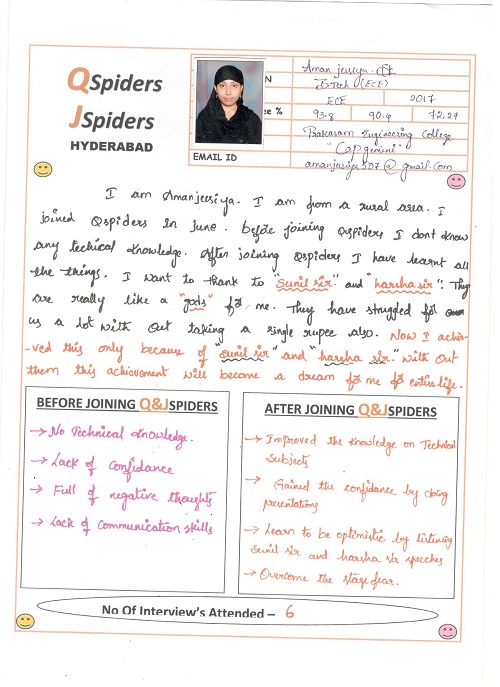 QSpiders
JSpiders
HYDERABAD
N Aman jeesiya.
B.Tech (ECE)
ECE 2017
e % 93.8 90.4 72.27
Engineering College
"Capgemini"
EMAIL ID amanjeesiya507@gmail.com
I am Amanjeesiya. I am from a rural area. I
joined Qspiders In June. Before joining Qspiders I dont know
any techical knowledge. After joining Qspiders I have learnt all
the things. I want to thank to "Sunil sir" and "harsha sir". They
are really like a "gods" for me. They have struggled for
us a lot with out taking a single rupee also. Now I achie-
ved this only because of "sunil sir" and "harsha sir." with out
them this achievement will become a dream for me for entire life.
BEFORE JOINING Q&JSPIDERS
→ No Technical knowledge.
→ Lack of confidance
→ Full of negative thoughts
→ Lack of communication skills
AFTER JOINING Q&JSPIDERS
→ Improved the knowledge on Technical
Subjects
→ Gained the confidance by doing
presentations
→ Learn to be optimistic by listening
Sunil sir and harsha sir speeches
→ Overcome the stage fear.
No Of Interview's Attended – 6